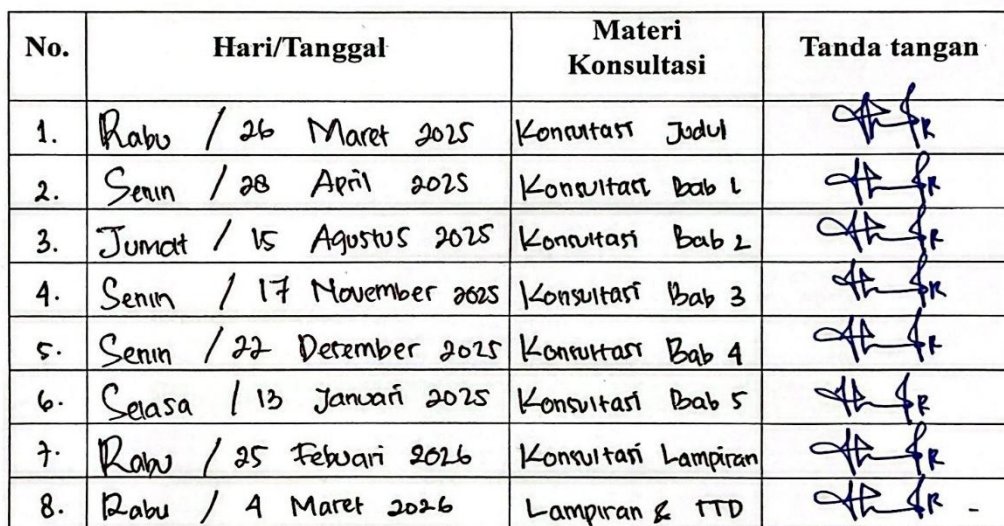 No. Hari/Tanggal Materi Konsultasi Tanda tangan
1. Rabu / 26 Maret 2025 Konsultasi Judul
2. Senin / 28 April 2025 Konsultasi Bab 1
3. Jumat / 15 Agustus 2025 Konsultasi Bab 2
4. Senin / 17 November 2025 Konsultasi Bab 3
5. Senin / 22 Desember 2025 Konsultasi Bab 4
6. Selasa / 13 Januari 2025 Konsultasi Bab 5
7. Rabu / 25 Febuari 2026 Konsultasi Lampiran
8. Rabu / 4 Maret 2026 Lampiran & TTD